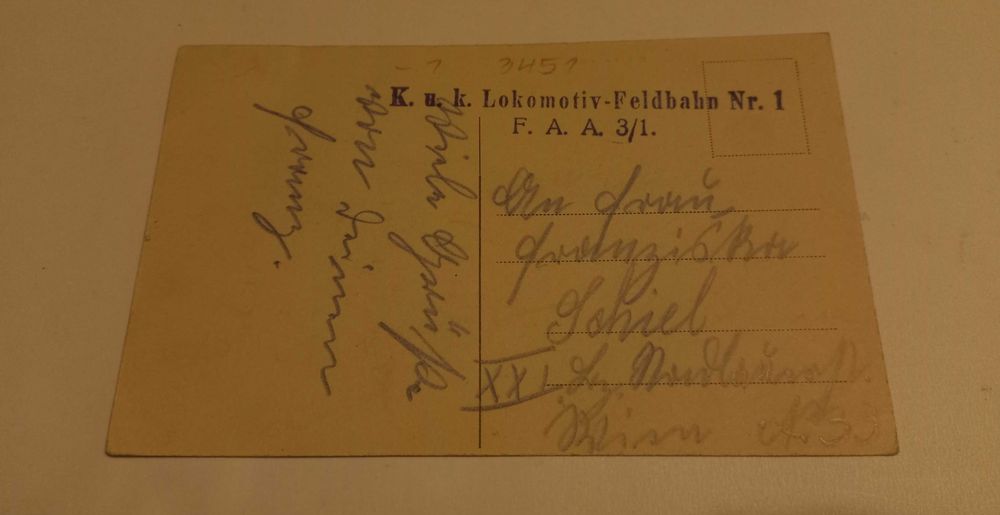 - 1 3451
K. u. k. Lokomotiv-Feldbahn Nr. 1
F. A. A. 3/1.
Viele Grüße
von Deinem
Franz.
An Frau
Franziska
Schiel
XXI
Wien No 33